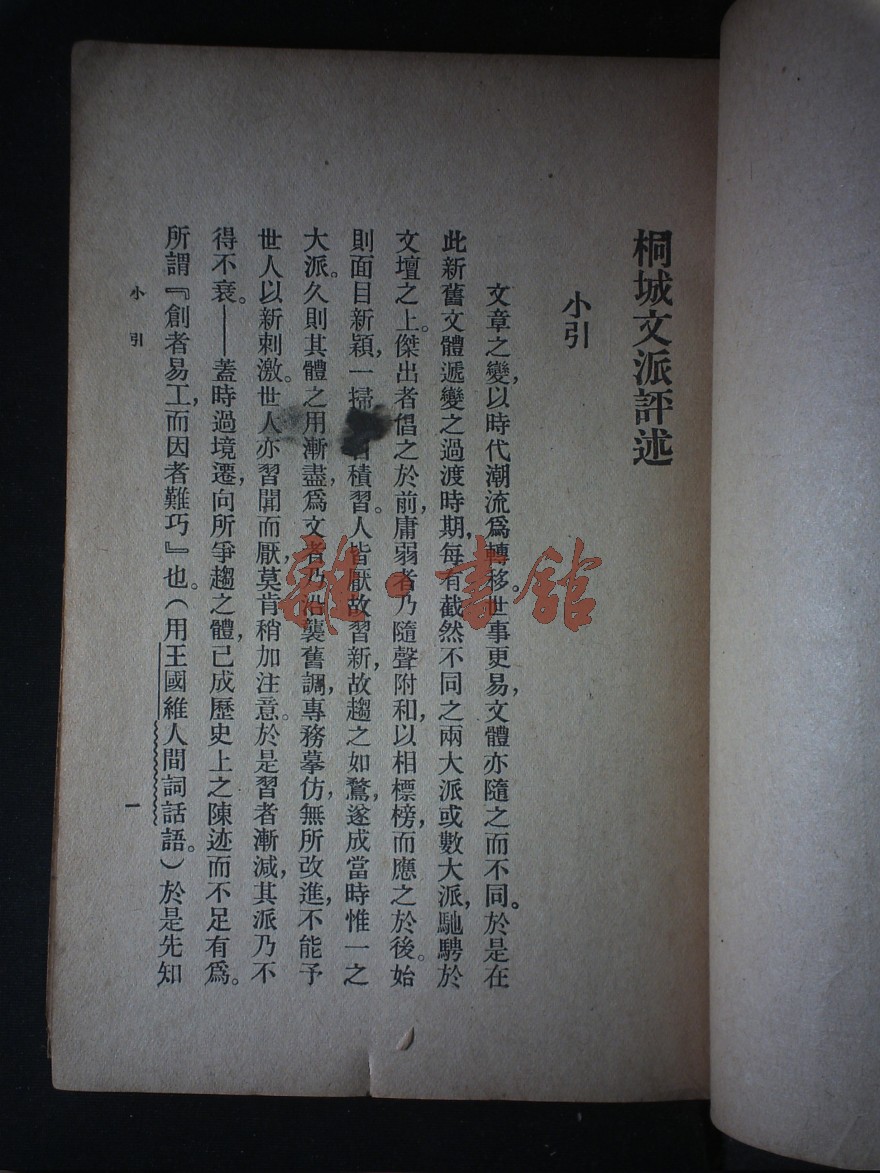 桐城文派評述
小引
文章之變，以時代潮流爲轉移。世事更易，文體亦隨之而不同。於是在
此新舊文體遞變之過渡時期，每有截然不同之兩大派或數大派，馳騁於
文壇之上。傑出者倡之於前，庸弱者乃隨聲附和，以相標榜，而應之於後。始
則面目新穎，一掃積習。人皆厭故習新，故趨之如鶩，遂成當時惟一之
大派。久則其體之用漸盡，爲文者乃沿襲舊調，專務摹仿，無所改進，不能予
世人以新刺激。世人亦習聞而厭，莫肯稍加注意。於是習者漸減，其派乃不
得不衰。——蓋時過境遷，向所爭趨之體，已成歷史上之陳迹而不足有爲。
所謂『創者易工，而因者難巧』也。（用王國維人間詞話語。）於是先知
小引
一
雜·書館